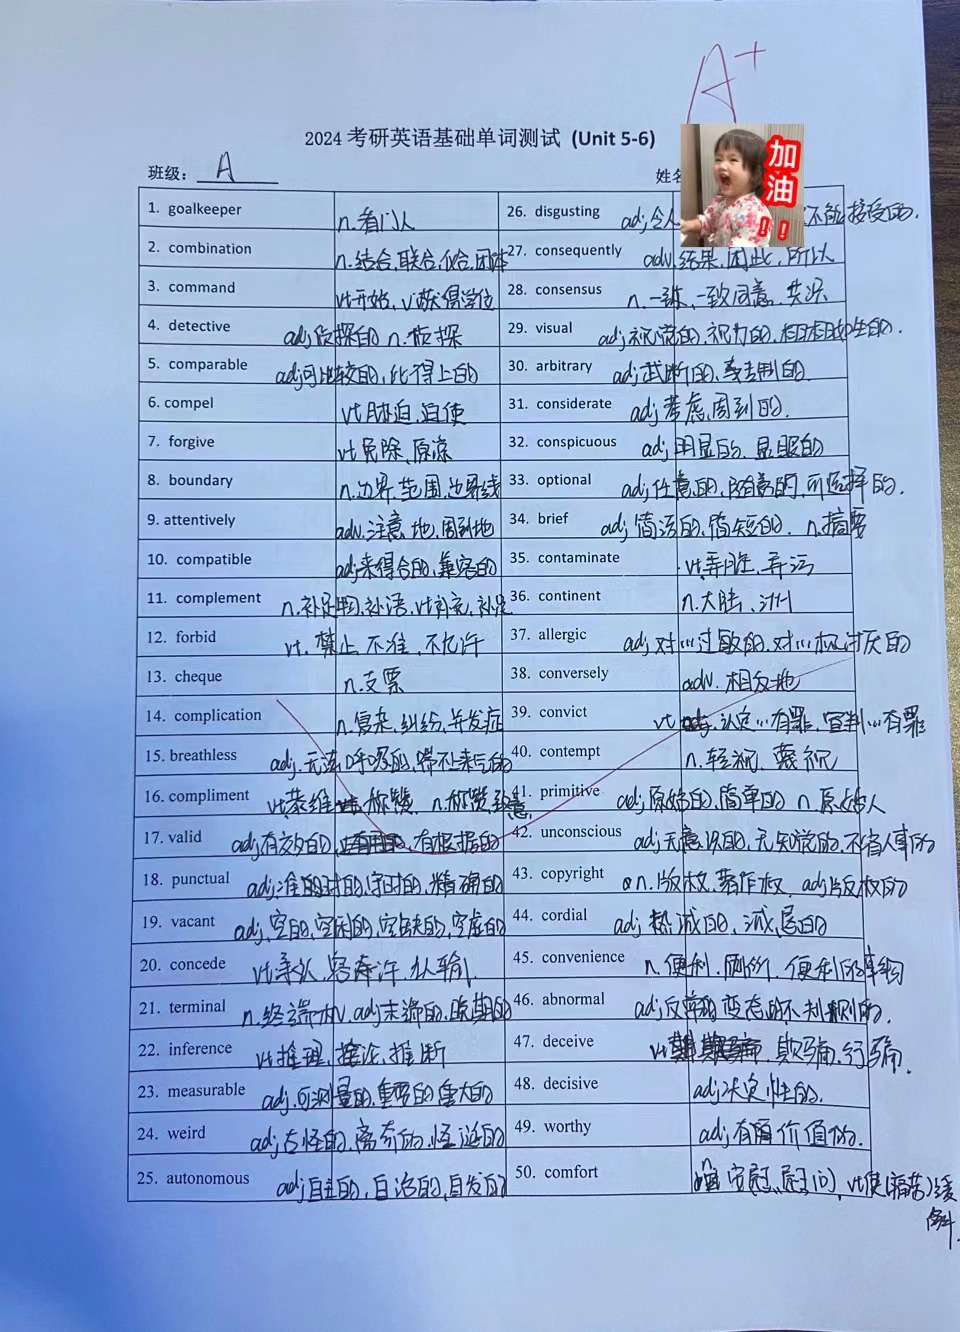 A+
2024 考研英语基础单词测试 (Unit 5-6)
班级： A
姓名
加油!!
1. goalkeeper n.看门人
2. combination n.结合,联合,化合,团体
3. command vt开始, v获得学位
4. detective adj侦探的 n.侦探
5. comparable adj可比较的,比得上的
6. compel vt胁迫,迫使
7. forgive vt免除,原谅
8. boundary n.边界,范围,边界线
9. attentively adv.注意地,周到地
10. compatible adj.合得来的,兼容的
11. complement n.补足物,补语,vt补充,补足
12. forbid vt. 禁止,不准,不允许
13. cheque n.支票
14. complication n.复杂,纠纷,并发症
15. breathless adj.无法呼吸的,喘不上来气的
16. compliment vt恭维 称赞 n.称赞,致意
17. valid adj有效的, 有根据的
18. punctual adj,准时的,守时的,精确的
19. vacant adj,空的,空闲的,空缺的,空虚的
20. concede vt承认,容许,认输
21. terminal n.终端机, adj末端的,晚期的
22. inference vt推理,推论,推断
23. measurable adj.可测量的,重要的,重大的
24. weird adj古怪的,离奇的,怪诞的
25. autonomous adj自主的,自治的,自发的
26. disgusting adj,令人 不能接受的.
27. consequently adv.结果,因此,所以
28. consensus n.一致,一致同意,共识
29. visual adj,视觉的,视力的,栩栩如生的.
30. arbitrary adj,武断的,专制的.
31. considerate adj考虑周到的.
32. conspicuous adj明显的,显眼的
33. optional adj,任意的,随意的,可选择的.
34. brief adj,简洁的,简短的. n.摘要
35. contaminate vt,弄脏,弄污
36. continent n.大陆、洲
37. allergic adj,对…过敏的,对…极讨厌的
38. conversely adv. 相反地
39. convict vt 认定…有罪,宣判…有罪
40. contempt n.轻视、蔑视
41. primitive adj原始的,简单的 n.原始人
42. unconscious adj无意识的,无知觉的,不省人事的
43. copyright n.版权,著作权, adj版权的
44. cordial adj 热诚的、诚恳的
45. convenience n.便利, 便利的事物
46. abnormal adj,反常的,变态的,不规则的.
47. deceive vt 欺骗,行骗.
48. decisive adj决定性的.
49. worthy adj,有价值的.
50. comfort n 安慰、慰问, vt使(痛苦)缓解.